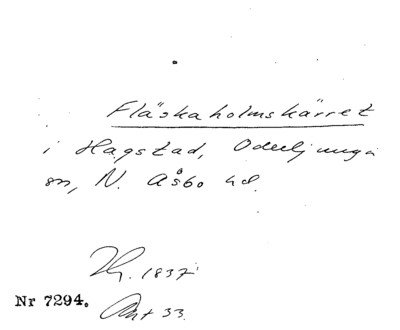 Fläskaholmskärret
i Hagstad, Oderljunga
sn, N. Åsbo hd.
1837
Nr 7294.
Akt 33.